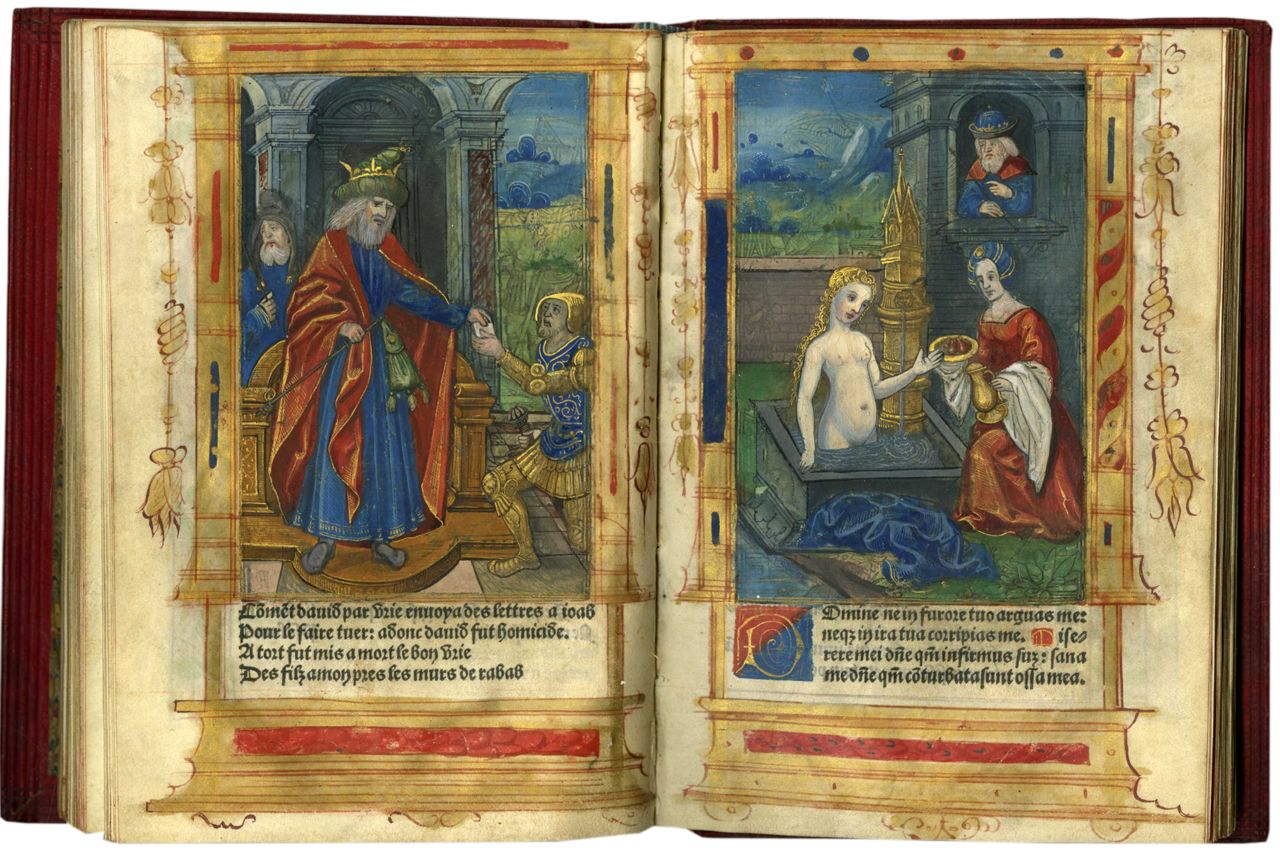 Cōmēt dauid par Vrie enuoya des lettres a ioab
Pour le faire tuer: adonc dauid fut homicide.
A tort fut mis a mort le bon Vrie
Des filz amon pres les murs de rabab
Domine ne in furore tuo arguas me:
neqʒ in ira tua corripias me. Mise-
rere mei dn̄e qm̄ infirmus suʒ: sana
me dn̄e qm̄ cōturbata sunt ossa mea.